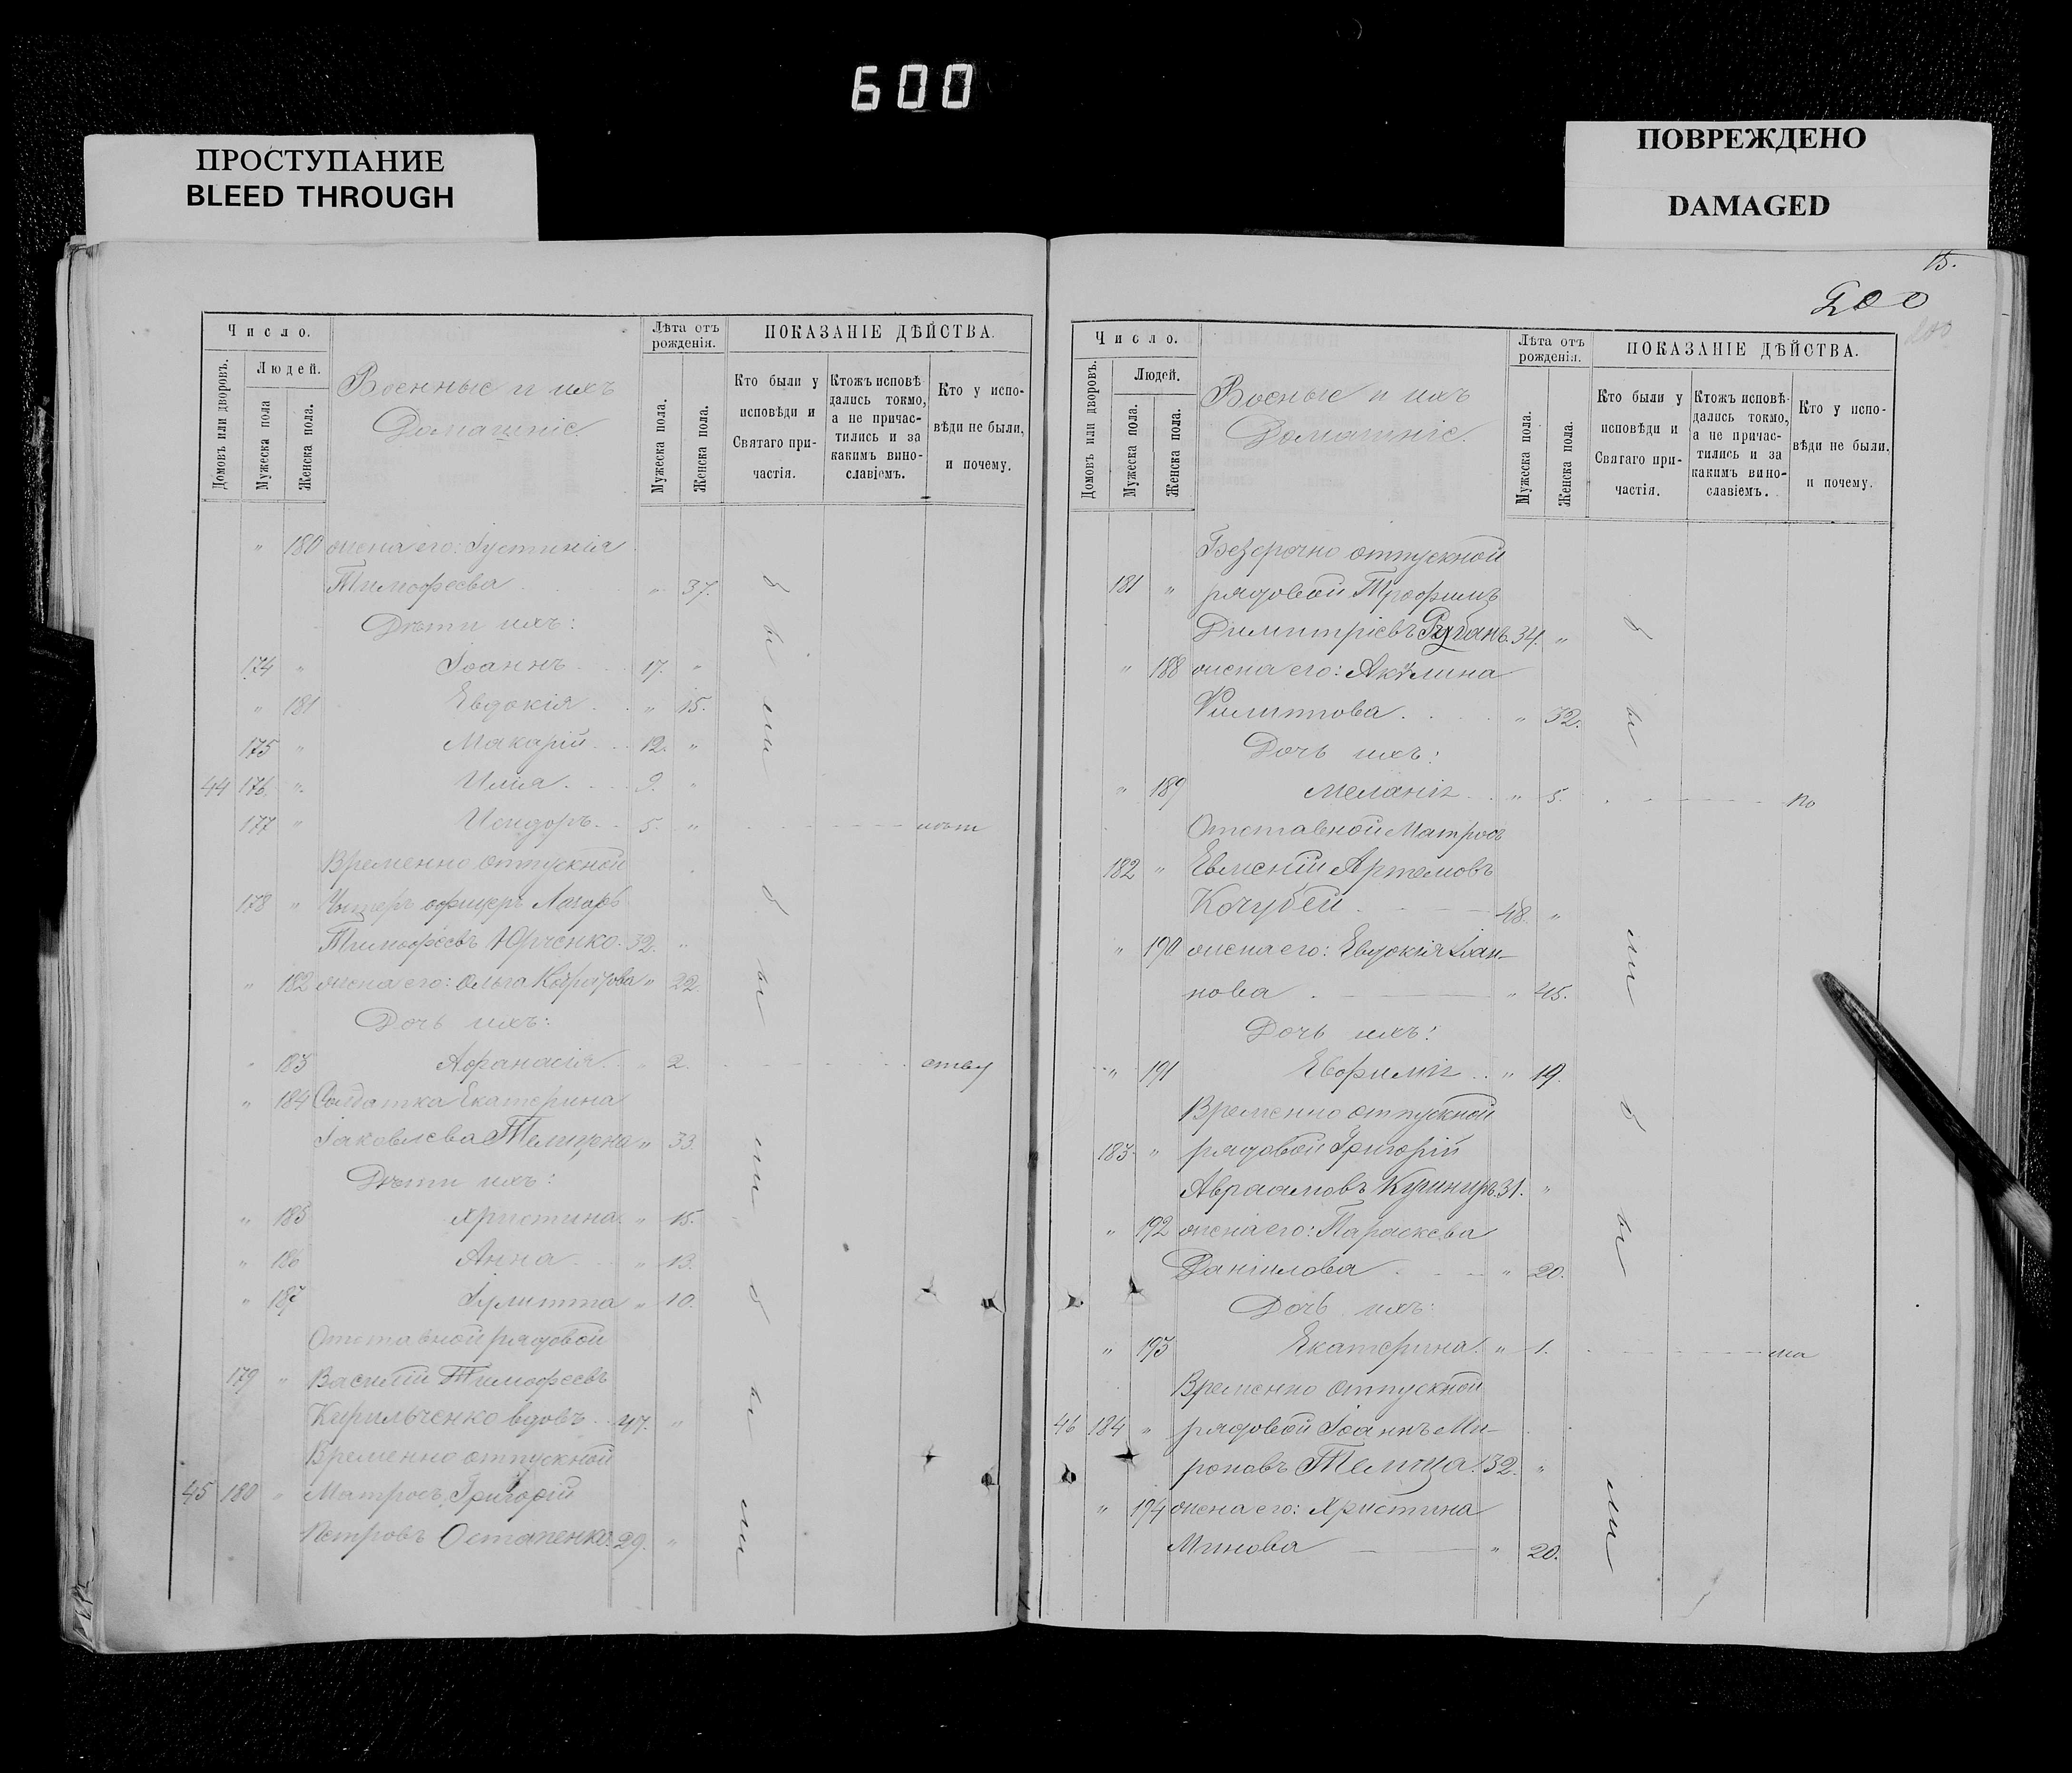 600
ПРОСТУПАНИЕ
BLEED THROUGH
ПОВРЕЖДЕНО
DAMAGED
Число.
Домовъ или дворовъ.
Людей.
Мужеска пола
Женска пола.
Военные и ихъ
Домашніе.
Лѣта отъ рожденія.
Мужеска пола.
Женска пола.
ПОКАЗАНІЕ ДѢЙСТВА.
Кто были у исповѣди и Святаго причастія.
Ктожъ исповѣдались токмо, а не причастились и за какимъ винославіемъ.
Кто у исповѣди не были, и почему.
" 180 жена его: Іустинія
Тимофеева " 37.
Дѣти ихъ:
174 " Іоаннъ 17. "
" 181 Евдокія " 15.
175 " Макарій 12. "
44 176 " Илія 9. "
177 " Исидоръ 5. "
Временно отпускной
178 " Унтеръ офицеръ
Тимофеевъ Юрченко 32. "
" 182 жена его: Ольга " 22.
Дочь ихъ:
" 183 Афанасія " 2.
" 184 Солдатка Екатерина
Іаковлева " 33.
Дѣти ихъ:
" 185 Христина " 15.
" 186 Анна " 13.
" 187 Іулитта " 10.
Отставной рядовой
179 " Василій Тимофеевъ
Кирильченко вдовъ 47. "
Временно отпускной
45 180 " Матросъ Григорій
Петровъ Остапенко 29. "
были были были
15.
200
200
Число.
Домовъ или дворовъ.
Людей.
Мужеска пола.
Женска пола.
Военые и ихъ
Домашніе.
Лѣта отъ рожденія.
Мужеска пола.
Женска пола.
ПОКАЗАНІЕ ДѢЙСТВА.
Кто были у исповѣди и Святаго причастія.
Ктожъ исповѣдались токмо, а не причастились и за какимъ винославіемъ.
Кто у исповѣди не были, и почему.
Безсрочно отпускной
181 " рядовой Трофимъ
Димитріевъ Рубанъ 34. "
" 188 жена его: Акѵлина
Филиппова " 32.
Дочь ихъ:
" 189 Меланія " 5. по
Отставной Матросъ
182 " Евменій Артемовъ
Кочубей 48. "
" 190 жена его: Евдокія Іоан-
нова " 45.
Дочь ихъ:
" 191 Евфимія " 19.
Временно отпускной
183 " рядовой Григорій
Авраамовъ 31. "
" 192 жена его: Параскева
Даніилова " 20.
Дочь ихъ:
" 193 Екатерина " 1. ма
Временно отпускной
46 184 " рядовой Іоаннъ Ми-
роновъ 32. "
" 194 жена его: Христина
Минова " 20.
были были